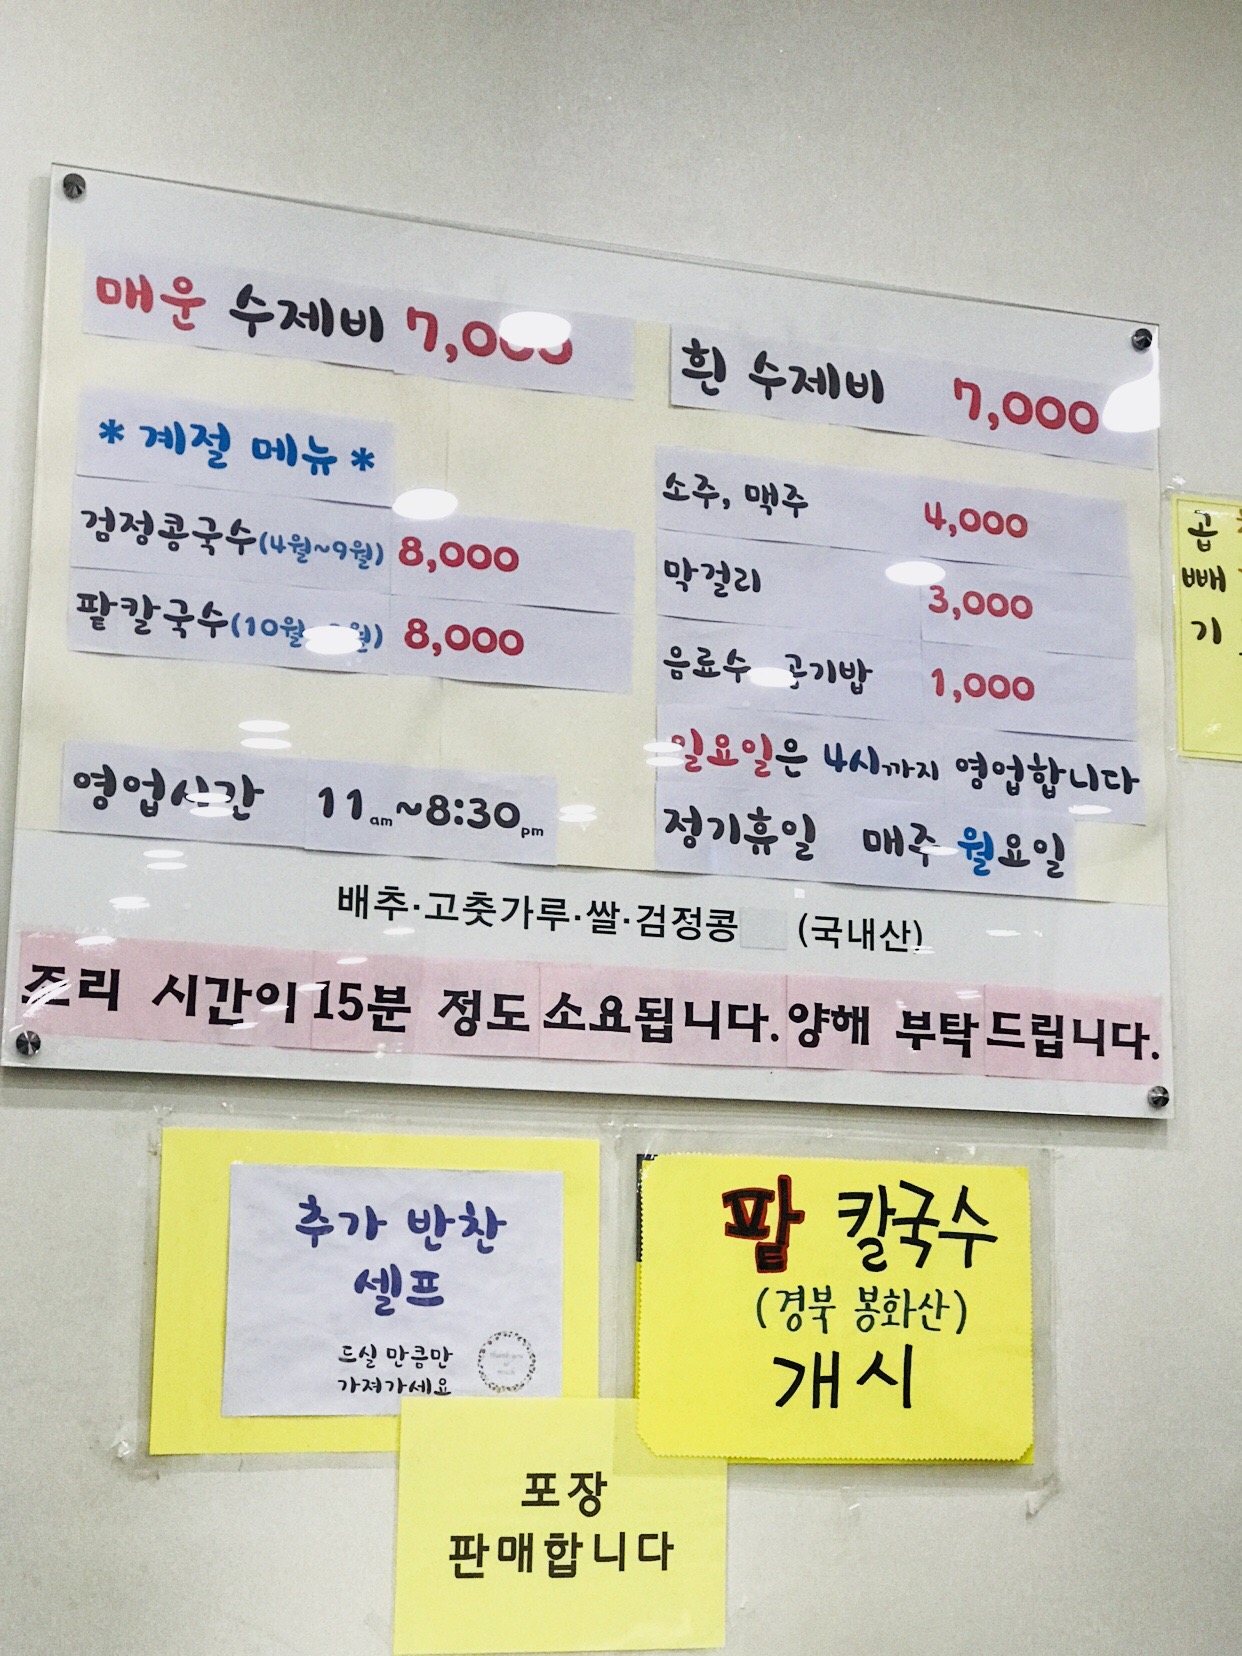 매운 수제비 7,000
흰 수제비 7,000
* 계절 메뉴 *
검정콩국수(4월~9월) 8,000
팥칼국수(10월 월) 8,000
소주, 맥주 4,000
막걸리 3,000
음료수 공기밥 1,000
일요일은 4시까지 영업합니다
영업시간 11am~8:30pm
정기휴일 매주 월요일
배추·고춧가루·쌀·검정콩 (국내산)
조리 시간이 15분 정도 소요됩니다. 양해 부탁드립니다.
곱
빼
기
추가 반찬
셀프
드실 만큼만
가져가세요
팥 칼국수
(경북 봉화산)
개시
포장
판매합니다